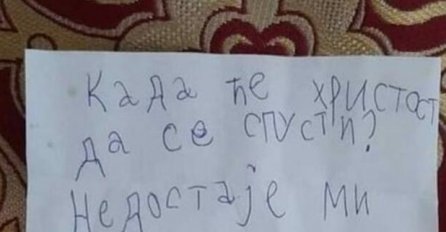 Када ће ХРИСТОСТ
да се спусти?
Недостаје ми